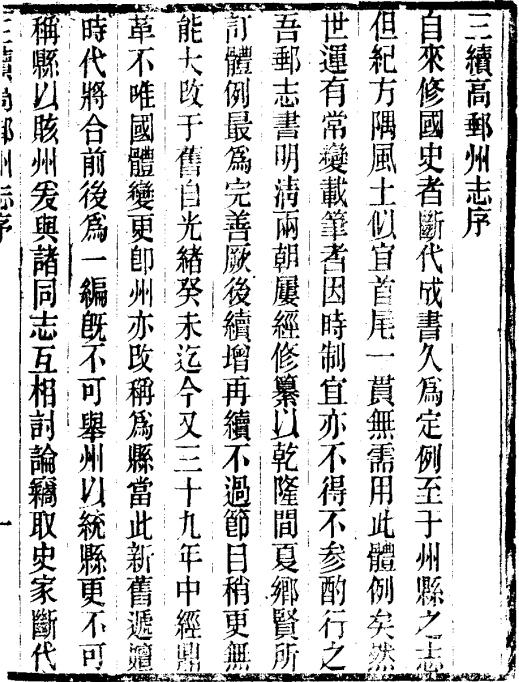 三續高郵州志序
自來修國史者斷代成書久為定例至于州縣之志
但紀方隅風土似宜首尾一貫無需用此體例矣然
世運有常變載筆者因時制宜亦不得不參酌行之
吾郵志書明清兩朝屢經修纂以乾隆間夏鄉賢所
訂體例最為完善厥後續增再續不過節目稍更無
能大改于舊自光緒癸未迄今又三十九年中經鼎
革不唯國體變更卽州亦改稱為縣當此新舊遞嬗
時代將合前後為一編旣不可舉州以統縣更不可
稱縣以賅州爰與諸同志互相討論竊取史家斷代
三續高郵州志序
一